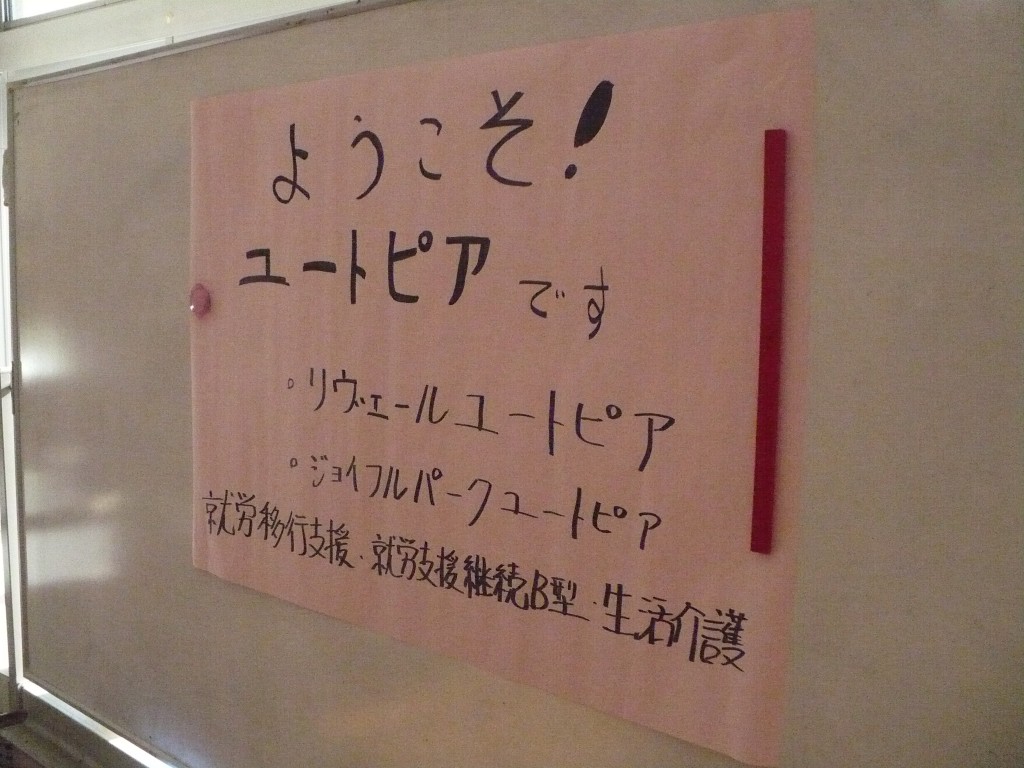 ようこそ!
ユートピアです
。リヴェールユートピア
。ジョイフルパークユートピア
就労移行支援・就労支援継続B型・生活介護